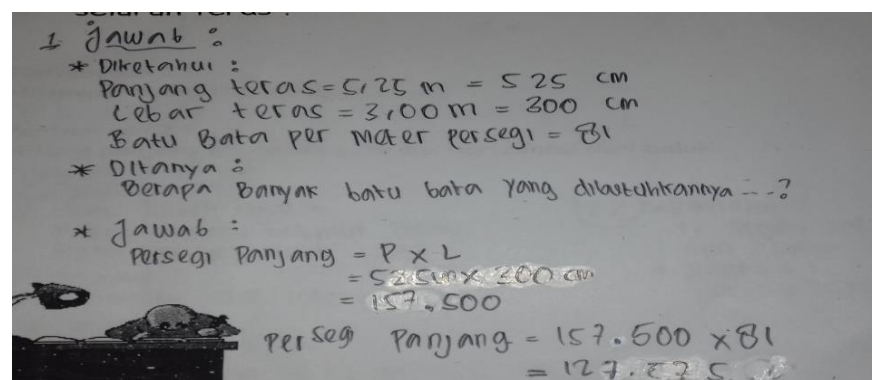 1 Jawab :
* Diketahui :
Panjang teras = 5,25 m = 525 cm
Lebar teras = 3,00 m = 300 cm
Batu Bata per Meter persegi = 81
* Ditanya :
Berapa Banyak batu bata yang dibutuhkannya --- ?
* Jawab :
Persegi Panjang = P x L
= 525 cm x 300 cm
= 157.500
Persegi Panjang = 157.500 x 81
= 127.575